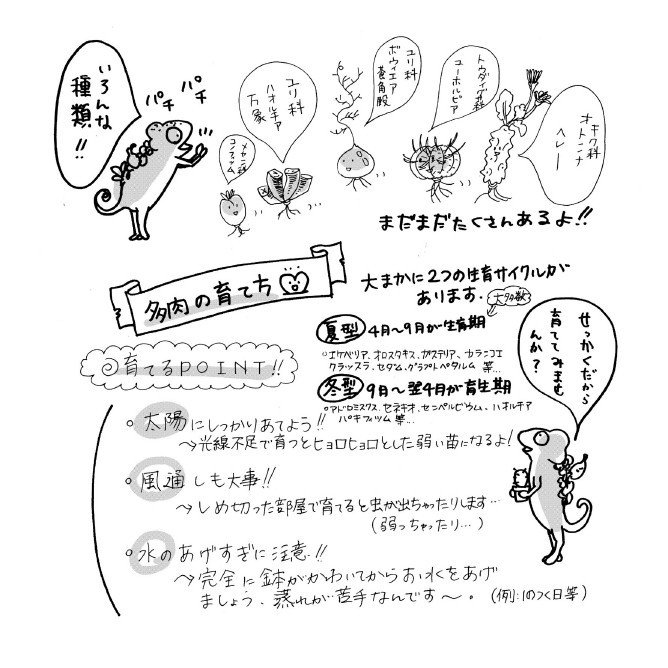 いろんな
種類!!
パチ
パチ
メセン科
コノフィツム
ユリ科
ハオルチア
万象
ユリ科
ボウィエア
蒼角殿
トウダイグサ科
ユーホルビア
キク科
オトンナ
ヘレー
まだまだたくさんあるよ!!
多肉の育て方
大まかに2つの生育サイクルが
あります.
大多数
夏型 4月〜9月が生育期
○エケベリア、オロスタキス、ガステリア、カランコエ
クラッスラ、セダム、グラプトペタルム 等…
冬型 9月〜翌4月が育生期
○アドロミスクス、セネキオ、センペルビウム、ハオルチア
パキフィツム等…
せっかくだから
育ててみませ
んか?
◎育てるPOINT!!
○太陽にしっかりあてよう!!
→光線不足で育つとヒョロヒョロとした弱い苗になるよ!
○風通しも大事!!
→しめ切った部屋で育てると虫が出ちゃったりします…
(弱っちゃったり…)
○水のあげすぎに注意!!
→完全に鉢がかわいてからお水をあげ
ましょう、蒸れが苦手なんです〜。(例:1のつく日等)